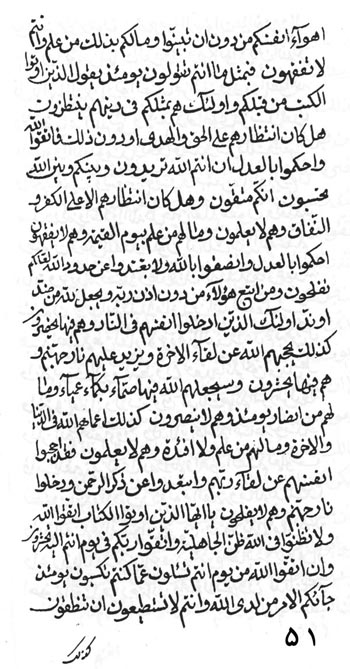 اهوآء انفسكم من دون ان تبينوا ومالكم بذلك من علم وانتم
لا تفقهون فبمثل ما انتم تقولون يومئذ يقول الذين اوتوا
الكتب من قبلكم واولئك هم مثلكم فى دينهم ينتظرون
هل كان انتظارهم على الحق والهدى او دون ذلك فاتقوا الله
واحكموا بالعدل ان انتم الله تريدون وبينكم وبين الله
يحسبون انكم متقون وهل كان انتظارهم الا على الكفر و
النفاق وهم لا يعلمون ومالهم من علم بيوم القيمة وهم لا يفقهون
احكموا بالعدل وانصفوا بالله ولا تعتدوا عن حدود الله لعلكم
تفلحون ومن اتبع هؤلاء من دون اذن ربه ويجعل لله من
اولئك الذين ادخلوا انفسهم فى النار وهم فيها
كذلك يحجبهم الله عن لقآء الاخرة ويزيد عليهم نار جهنم و
هم فيها وسيجعلهم الله فيها صمآء بكمآء عميآء وما
لهم من انصار يومئذ وهم لا ينصرون كذلك اعمالهم الله فى الدنيا
والاخرة ومالهم من علم ولا افئدة وهم لا يعلمون فقد احتجبوا
انفسهم عن لقآء ربهم وابتعدوا عن ذكر الرحمن ودخلوا
نار جهنم وهم لا يفلحون يا ايها الذين اوتوا الكتاب اتقوا الله
ولا تظنوا فى الله ظن الجاهلية واتقوا ربكم فى يوم انتم اليه
وان اتقوا الله من يوم انتم تسئلون عما كنتم تكسبون يومئذ
جآئكم الامر من لدى الله وانتم لا تستطيعون ان تنطقون
۵۱
كذلك